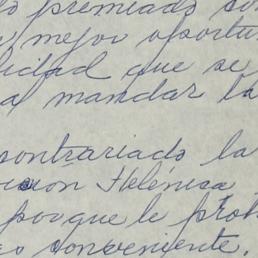 o premiado so
mejor oportu
idad que se
a mandar la
contrariado la
ción Helénica
porque le proh
co conveniente.